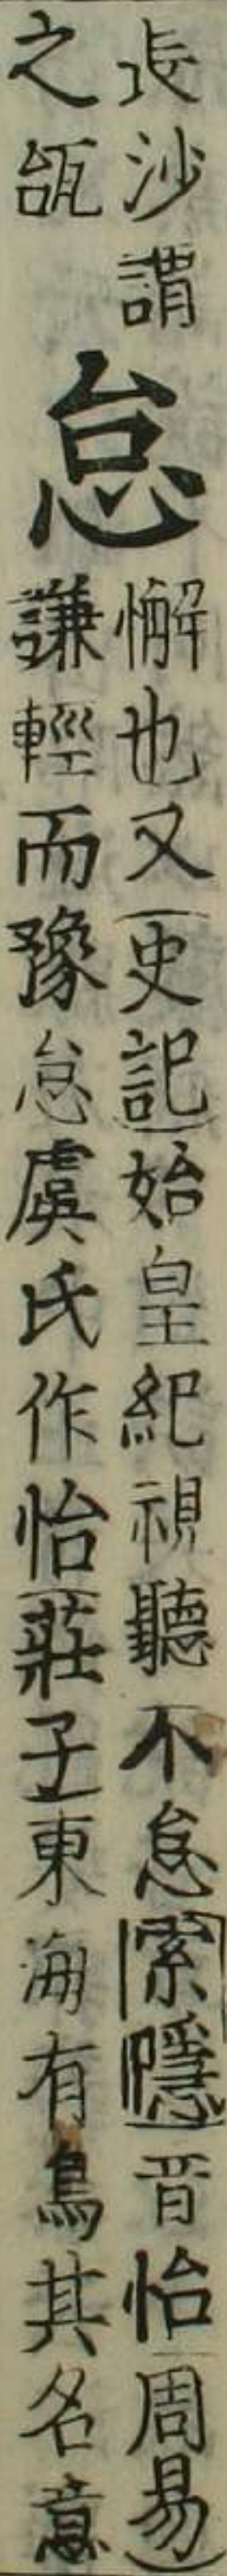 長沙謂
之瓵
怠
懈也又史記始皇紀視聽不怠索隱音怡周易
謙輕而豫怠虞氏作怡莊子東海有鳥其名意